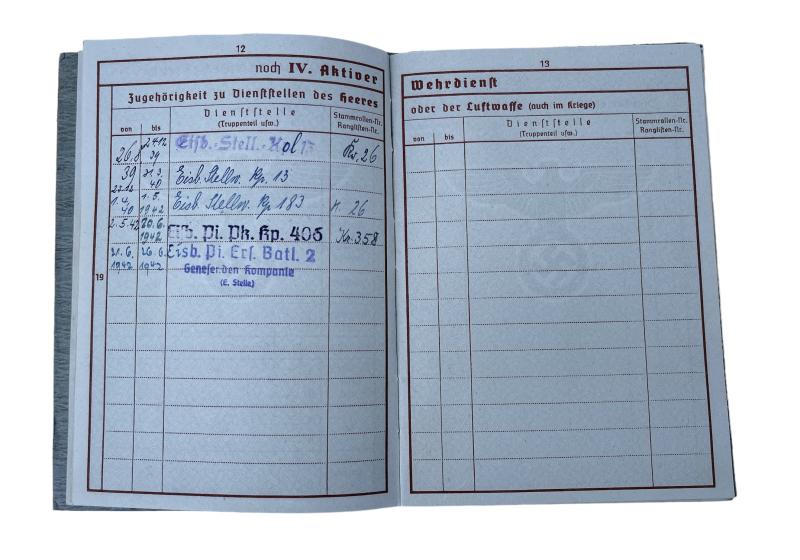 12
noch IV. Aktiver
Zugehörigkeit zu Dienststellen des Heeres
von bis Dienststelle (Truppenteil usw.) Stammrollen-Nr. Ranglisten-Nr.
26.8 39 Eisb.-Stell.-Kol 13 26
40 Eisb. Stellw. Kp. 13
1.4. 40 1.5. 1942 Eisb. Stellw. Kp 183 26
2.5.42 20.6. 1942 Eisb. Pi. Pk. Kp. 406 358
21.6. 1942 26.6. 1942 Eisb. Pi. Ers. Batl. 2
Genesenden Kompanie
(E. Stelle)
19
13
Wehrdienst
oder der Luftwaffe (auch im Kriege)
von bis Dienststelle (Truppenteil usw.) Stammrollen-Nr. Ranglisten-Nr.